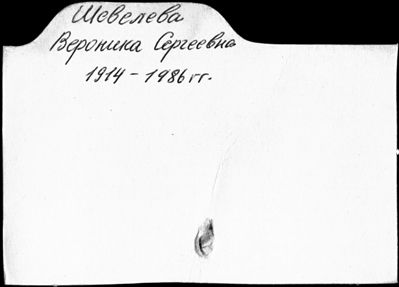 Шевелева
Вероника Сергеевна
1914 - 1986 гг.